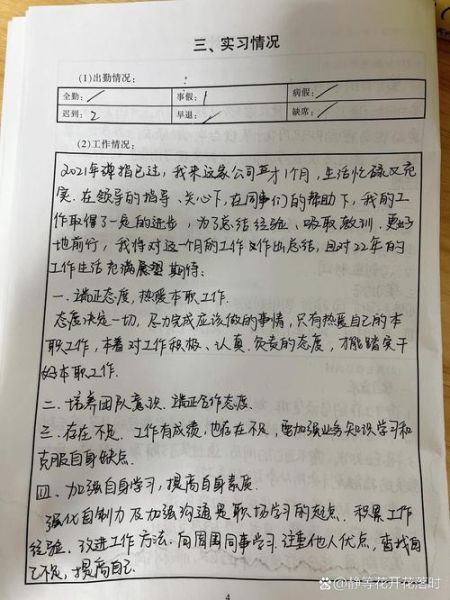 三、实习情况
(1)出勤情况:
全勤: / 事假: 1 病假: /
迟到: 2 早退: / 缺席: /
(2)工作情况:
2021年弹指已过,我来这家公司才1个月,生活忙碌又充
实。在领导的指导、关心下,在同事们的帮助下,我的工
作取得了一定的进步,为了总结经验、吸取教训、更好
地前行,我将对这一个月的工作作出总结,且对22年的
工作生活充满展望期待:
一、端正态度,热爱本职工作.
态度决定一切,尽力完成应该做的事情,只有热爱自己的本
职工作,本着对工作积极、认真、负责的态度,才能踏实干
好本职工作.
二、培养团队意识、端正合作态度.
三、存在不足. 工作有成绩,也存在不足,要加强业务知识学习和
克服自身缺点.
四、加强自身学习,提高自身素质.
强化自制力及加强沟通是职场学习的起点. 积累工作
经验、改进工作方法.向周围同事学习.注重他人优点,查找自
己不足,提高自己.
4
@静等花开花落时